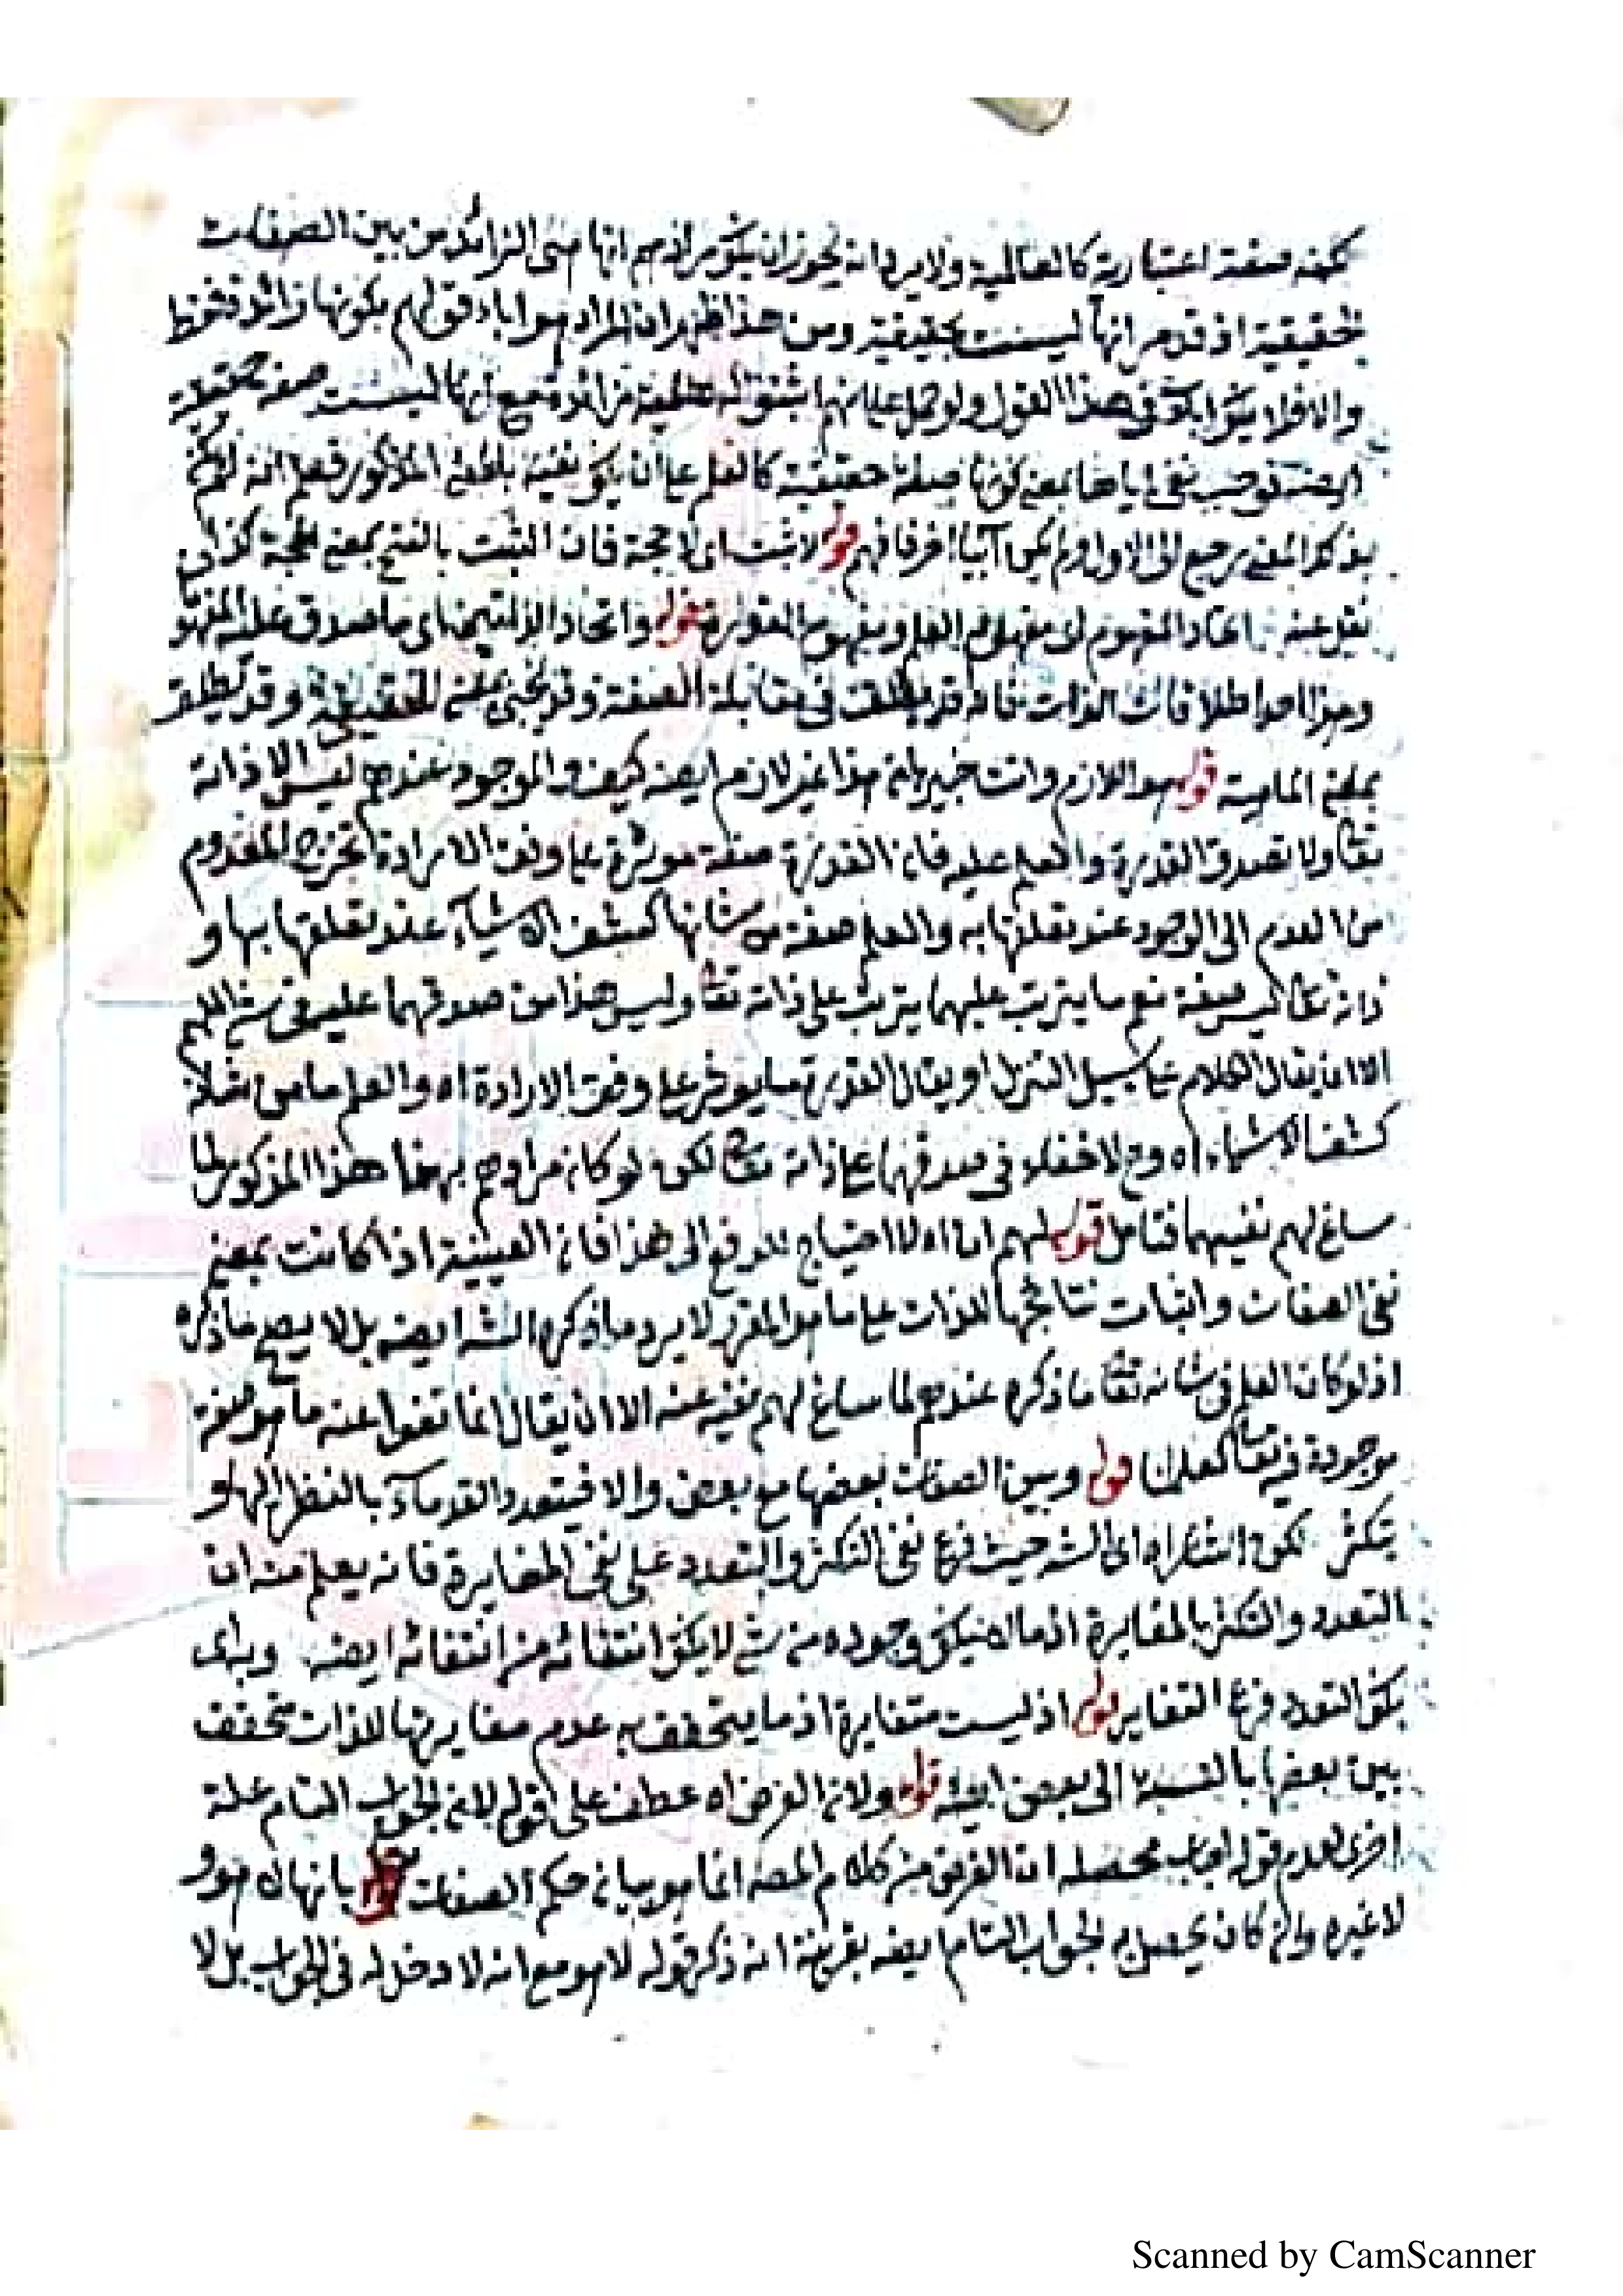 كونه صفة اعتبارية كالعالمية ولا يرد انه يجوز ان يكون مرادهم انها هى الزائد من بين الصفات
الحقيقية اذ قد مر انها ليست بحقيقية ومن هذا ظهر ان المراد هو اباء قولهم بكونها زائد فقط
والا فلا يكون اباء فى هذا القول ولو حمل على انها مع انها ليست صفة حقيقية
ايضه نفى اياها بمعنى كونها صفة حقيقية كالعلم على ان يكون نفيه بالمعنى المذكور فعلم انه لو لم
يذكر المعنى يرجع الى الاول ولم يكن آبيا اخر فافهم قوله لا ثبت اى لا حجة فان الثبت بالفتح بمعنى الحجة كذا
نقل عنه اتحاد المفهوم اى مفهوم العلم ومفهوم القدرة قوله واتحاد الذاتين اى ما صدق عليه المفهو
وهذا احد اطلاقات الذات فانه قد يطلق فى مقابلة الصفة وقد يجئ بمعنى الحقيقة وقد يطلق
بمعنى الماهية قوله هو اللازم وانت خبير بانه هذا غير لازم ايضه كيف والموجود عندهم ليس الا ذاته
تعا ولا تصدق القدرة والعلم عليه فان القدرة صفة موثرة على وفق الارادة تخرج المعدوم
من العدم الى الوجود عند تعلقها به والعلم صفة من شانها كشف الاشياء عند تعلقها بها و
ذاته تعا ليس صفة نعم ما يترتب عليهما يترتب على ذاته تعا وليس هذا من صدقهما عليه فى شئ اللهم
الا ان يقال الكلام على سبيل التنزل او يقال القدرة ما يوثر على وفق الارادة اه والعلم ما من شانه
كشف الاشياء اه وح لا خفاء فى صدقهما على ذاته تعا لكن لو كان مرادهم بهما هذا المذكور لما
ساغ لهم نفيهما فتامل قوله لهم ان اه لا احتياج للدفع الى هذا فان العينية اذا كانت بمعنى
نفى الصفات واثبات نتائجها للذات على ما هو المقرر لا يرد ما ذكره الشه ايضه بل لا يصح ما ذكره
اذ لو كان العلم فى شانه تعا ما ذكره عندهم لما ساغ لهم نفيه عنه الا ان يقال انما نفوا عنه ما هو صفة
موجودة فيه تعا كعلمنا قوله وبين الصفات بعضها مع بعض والا فيتعدد القدماء بالنظر اليها و
يتكثر نكون اشار اه الى الشه حيث فرع نفى التكثر والتعدد على نفى المغايرة فانه يعلم منه ان
التعدد والتكثر بالمغايرة اذ ما لا يكون وجوده من شئ لا يكون انتفائه من انتفائه ايضه وينادى
بكون التعدد فرع التغاير قوله اذ ليست متغايرة اذ ما يتحقق به عدم مغايرتها للذات متحقق
بين بعضها بالنسبة الى بعض ايضه قوله ولان الغرض اه عطف على قوله لان الجواب التام علة
اخرى لعدم قوله اجاب محصله ان الغرض من كلام المصه انما هو بيان حكم الصفات بانها لا هو و
لا غيره وان كان يحصل به الجواب التام ايضه بقرينة انه ذكر قوله لا هو مع انه لا دخل له فى الجواب بل لا
Scanned by CamScanner